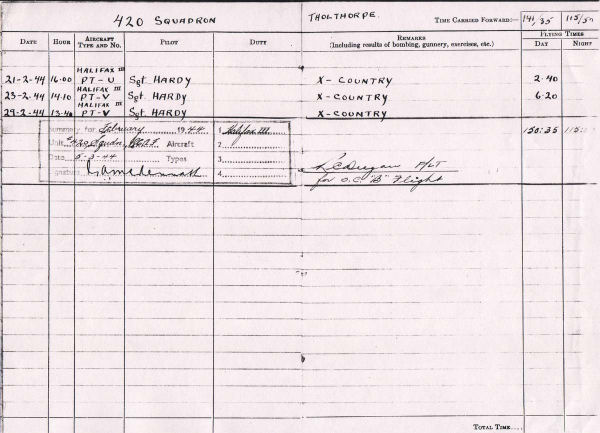 420 SQUADRON THOLTHORPE. TIME CARRIED FORWARD:— 141/35 115/50
DATE HOUR AIRCRAFT TYPE AND NO. PILOT DUTY REMARKS (Including results of bombing, gunnery, exercises, etc.) FLYING TIMES DAY NIGHT
HALIFAX III
21-2-44 16.00 PT-U Sgt HARDY X-COUNTRY 2.40
HALIFAX III
23-2-44 14.10 PT-V Sgt HARDY X-COUNTRY 6.20
HALIFAX III
29-2-44 13.40 PT-V Sgt HARDY X-COUNTRY
Summary for February 1944 1. Halifax III. 150:35
Unit 420 Squdn. Aircraft 2.
Date 5-3-44 Types 3.
Signature 4.
F/LT
for O.C "B" Flight
TOTAL TIME....